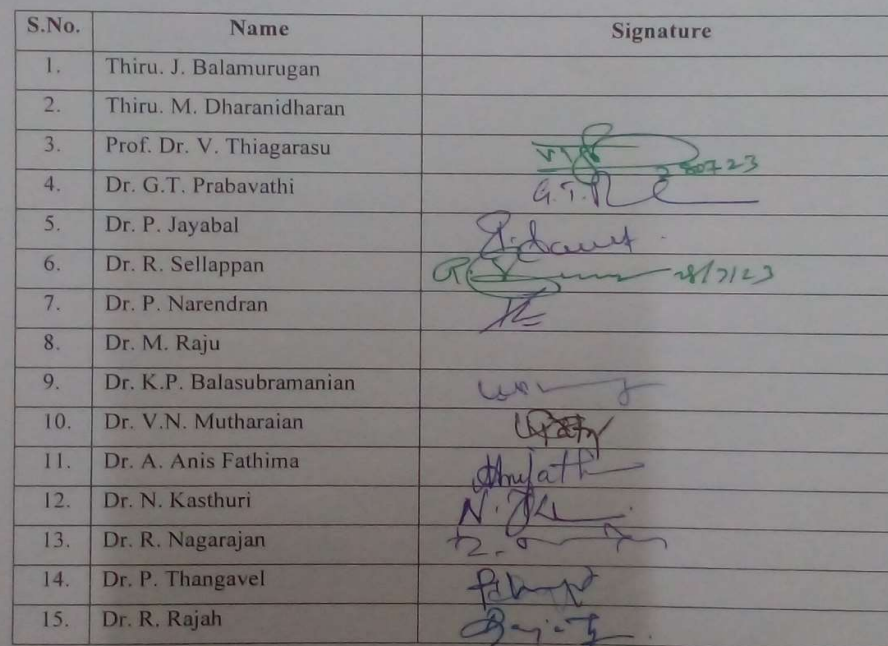 S.No. Name Signature
1. Thiru. J. Balamurugan
2. Thiru. M. Dharanidharan
3. Prof. Dr. V. Thiagarasu 280723
4. Dr. G.T. Prabavathi G.T.
5. Dr. P. Jayabal
6. Dr. R. Sellappan 28/7/23
7. Dr. P. Narendran
8. Dr. M. Raju
9. Dr. K.P. Balasubramanian
10. Dr. V.N. Mutharaian
11. Dr. A. Anis Fathima
12. Dr. N. Kasthuri N.
13. Dr. R. Nagarajan
14. Dr. P. Thangavel
15. Dr. R. Rajah